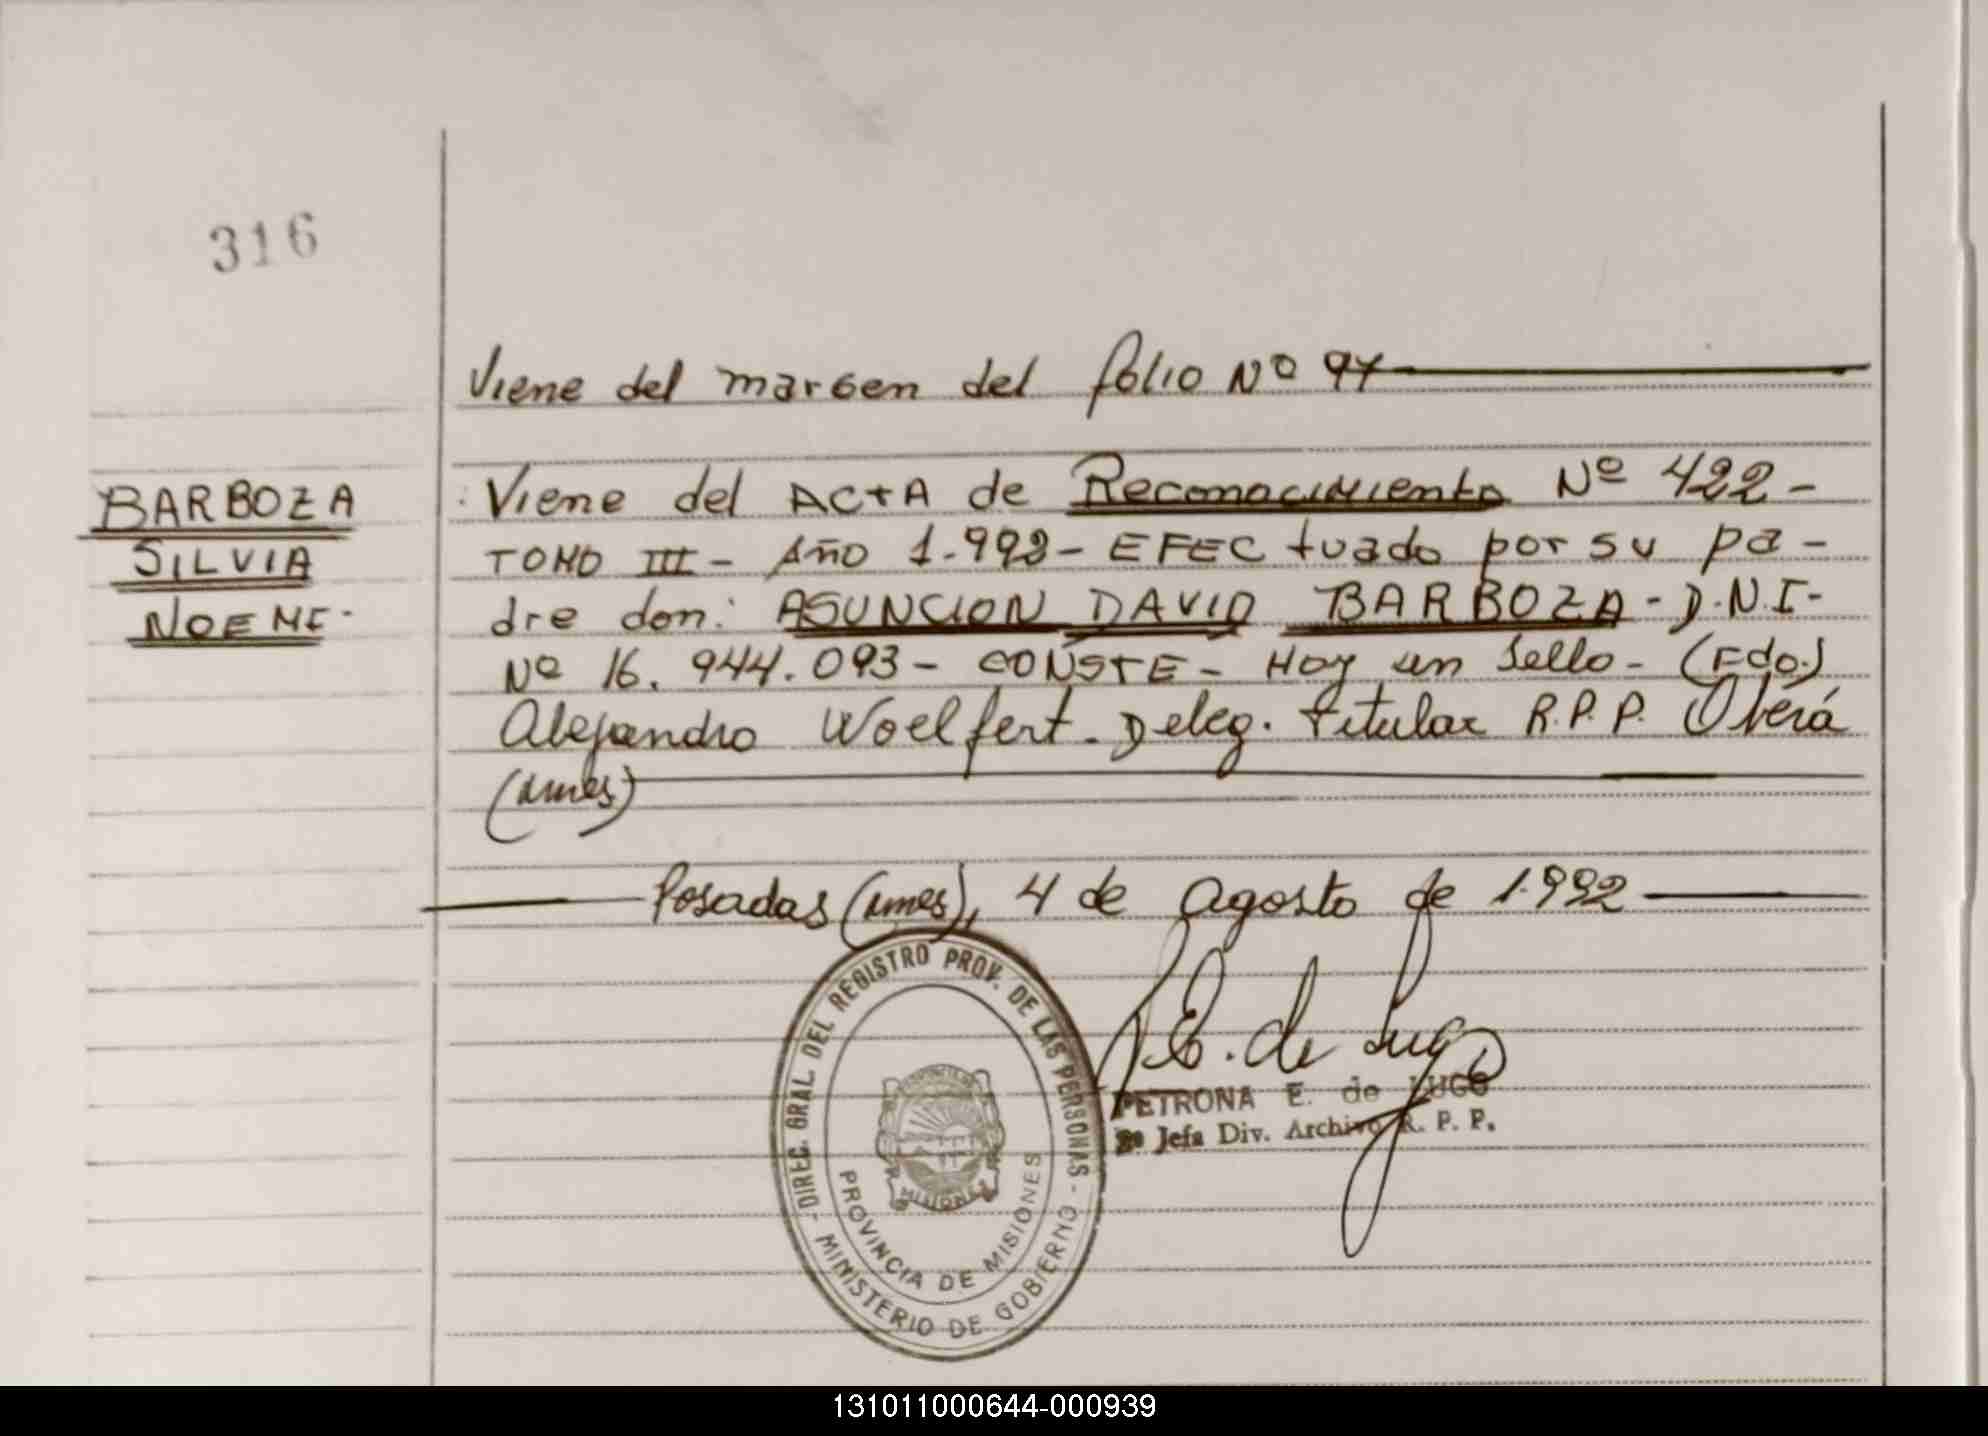 316
Viene del margen del folio Nº 94
BARBOZA
SILVIA
NOEMI.
Viene del ACTA de Reconocimiento Nº 422-
TOMO III - Año 1.992- EFECtuado por su pa-
dre don: ASUNCION DAVID BARBOZA - D.N.I-
Nº 16.944.093- CONSTE- Hay un sello- (Fdo.)
Alejandro Woelfert. Deleg. titular R.P.P. Oberá
(Mnes)
Posadas (Mnes), 4 de Agosto de 1.992
DIREC. GRAL. DEL REGISTRO PROV. DE LAS PERSONAS
MINISTERIO DE GOBIERNO
PROVINCIA DE MISIONES
MISIONES
P.E. de Lugo
PETRONA E. de LUGO
2º Jefa Div. Archivo R. P. P.
131011000644-000939